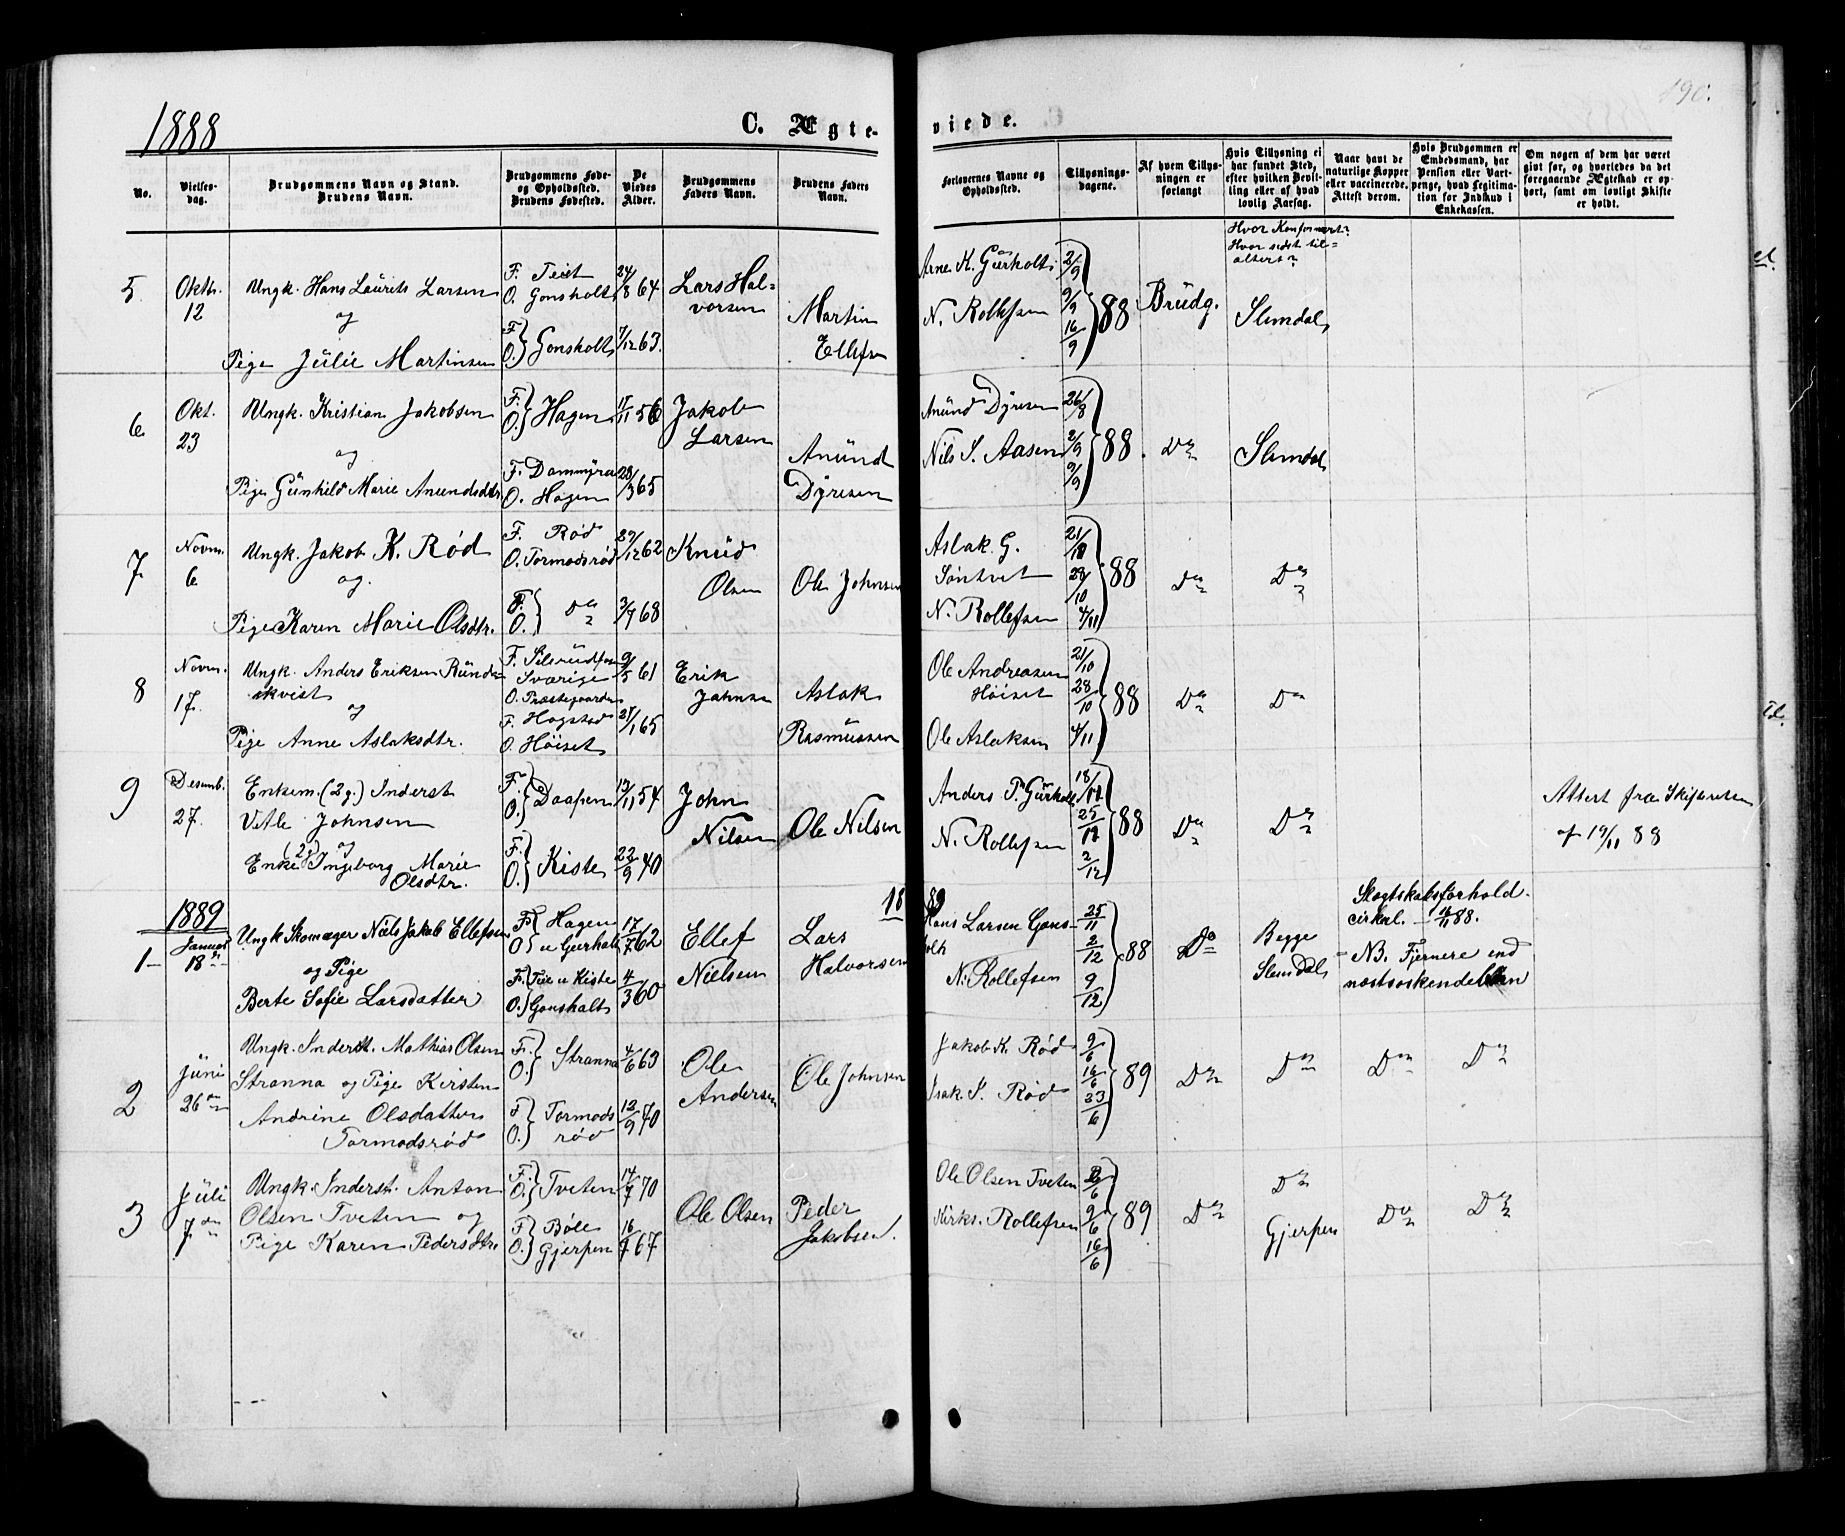 1888
C. Ægte-
viede.
190.
No.
Vielses-
dag.
Brudgommens Navn og Stand.
Brudens Navn.
Brudgommens Føde-
og Opholdssted.
Brudens Fødested.
De
Viedes
Alder.
Brudgommens
Faders Navn.
Brudens Faders
Navn.
Forlovernes Navne og
Opholdssted.
Tillysnings-
dagene.
Af hvem Tillys-
ningen er
forlangt
Hvis Tillysning ei
har fundet Sted,
efter hvilken Bevil-
ling eller af hvad
lovlig Aarsag.
Naar havt de
naturlige Kopper
eller vaccinerede.
Attest derom.
Hvis Brudgommen er
Embedsmand, har
Pension eller Vart-
penge, hvad Legitima-
tion for Indskud i
Enkekassen.
Om nogen af dem har været
givt før, og hvorledes da det
foregaaende Ægteskab er op-
hørt, samt om lovligt Skifte
er holdt.
Hvor Konfirmert?
Hvor sidst til=
alters?
5
Oktb.
12
Ungk. Hans Laurits Larsen
og
Pige Julie Martinsen
F. Teiet
O. Gonsholt
F. O. } Gonsholt
24/8 64
7/12 63.
Lars Hal=
vorsen
Martin
Ellefsen
Arne K. Gurholt
N. Rollefsen
2/9
9/9
16/9
88
Brudg.
Slemdal
6
Okt.
23
Ungk. Kristian Jakobsen
og
Pige Gunhild Marie Anundsdtr
F. O. } Hagen
F. Dammyra
O. Hagen
17/11 56
28/3 65
Jakob
Larsen
Anund
Dyresen
Anund Dyresen
Nils S. Aasen
26/8
2/9
9/9
88.
Do
Slemdal
7
Novm.
6
Ungk. Jakob K. Rød
og.
Pige Karen Marie Olsdtr.
F. Rød
O. Tormodsrød
F. O. } Do
27/12 62
3/7 68
Knud
Olsen
Ole Johnsen
Aslak G.
Søntvet
N. Rollefsen
21/10
28/10
4/11
88
Do
Do
8
Novm.
17.
Ungk. Anders Eriksen Runde
kvist
og
Pige Anne Aslaksdtr.
Sværige
O. Præstegaarden
F. Hogstad
O. Høiset
9/5 61
27/1 65
Erik
Johnsen
Aslak
Rasmussen
Ole Andreasen
Høiset
Ole Aslaksen
21/10
28/10
4/11
88
Do
Do
9
Desemb.
27.
Enkem. (2g.) Inderst
Vetle Johnsen
og
Enke (2g) Ingeborg Marie
Olsdtr.
F. O. } Daapen
F. O. } Kiste
13/11 54
22/9 40
John
Nilsen
Ole Nilsen
Anders P. Gurholt
N. Rollefsen
18/11
25/11
2/12
88
Do
Do
Attest fra Skifteretten
af 19/11 88
1889
1889
1
Januar
18
Ungk Skomager Niels Jakob Ellefsen
og Pige
Berte Sofie Larsdatter
F. Hagen
O. u Gurholt
F. Teie u Kiste
O. Gonsholt
17/7 62
4/3 60
Ellef
Nielsen
Lars
Halvorsen
Hans Larsen Gons-
holt
N. Rollefsen
25/11
2/12
9/12
88
Do
Begge
Slemdal
Slægtskabsforhold.
cirkul. 88.
NB. Fjernere end
næstsøskendebørn
2
Juni
26
Ungk. Inderst. Mathias Olsen
Stranna og Pige Kirsten
Andrine Olsdatter
Tormodsrød
F. O. } Stranna
F. O. } Tormods
rød
4/6 63
12/9 70
Ole
Andersen
Ole Johnsen
Jakob K. Rød
Isak. S. Rød
9/6
16/6
23/6
89
Do
Do
Do
Do
3
Juli
7
Ungk. Inderst. Anton
Olsen Tveten og
Pige Karen Pedersdtr
F. O. } Tveten
F. Bøle
O. Gjerpen
14/7 70
16/7 67
Ole Olsen
Peder
Jakobsen.
Ole Olsen Tveten
Kirks. Rollefsen
2/6
9/6
16/6
89
Do
Do
Gjerpen
Do
Do